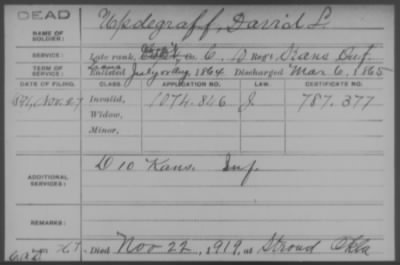 DEAD
NAME OF SOLDIER:
Updegraff, David L.
SERVICE:
Late rank, Co. C, D Reg't Kans Inf.
TERM OF SERVICE:
Enlisted July or Aug, 1864 Discharged Mar 6, 1865
DATE OF FILING. CLASS. APPLICATION NO. CERTIFICATE NO.
1891, Nov. 27 Invalid, 1074.846 J 787.377
Widow,
Minor,
ADDITIONAL SERVICES:
D 10 Kans. Inf.
REMARKS:
Died Nov 22, 1919, at Stroud Okla